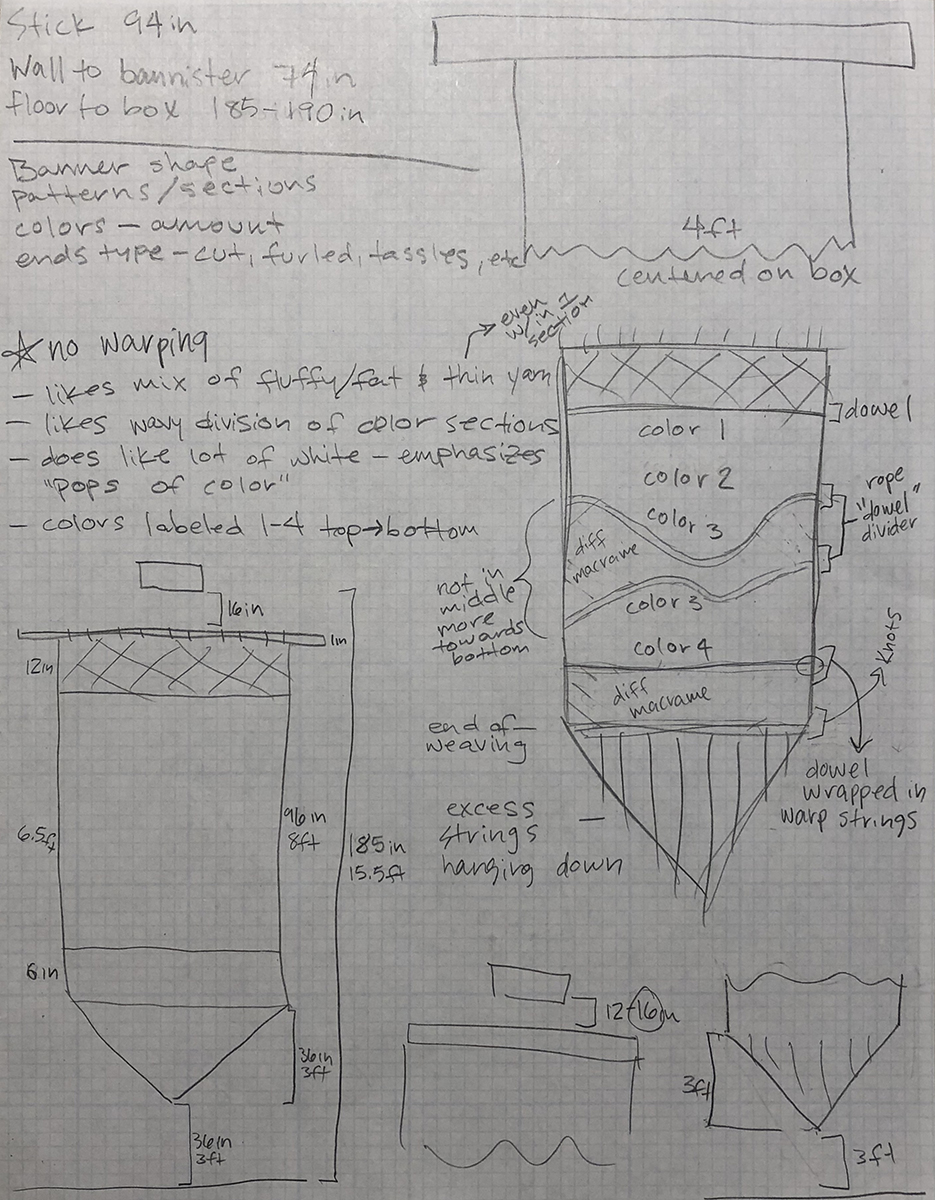 Stick 94in
Wall to bannister 74in
floor to box 185-190in
Banner shape
patterns/sections
colors - amount
ends type - cut, furled, tassles, etc
4ft
centered on box
☆ no warping
- likes mix of fluffy/fat & thin yarn
even
w/in 1
section
- likes wavy division of color sections
- does like lot of white - emphasizes
"pops of color"
- colors labeled 1-4 top→bottom
dowel
color 1
color 2
color 3
diff
macrame
color 3
color 4
diff
macrame
rope
"dowel"
divider
Knots
not in
middle
more
towards
bottom
end of
weaving
excess
strings
hanging down
dowel
wrapped in
warp strings
16in
1in
12in
6.5ft
96in
8ft
185in
15.5ft
6in
36in
3ft
36in
3ft
12-16in
3ft
3ft